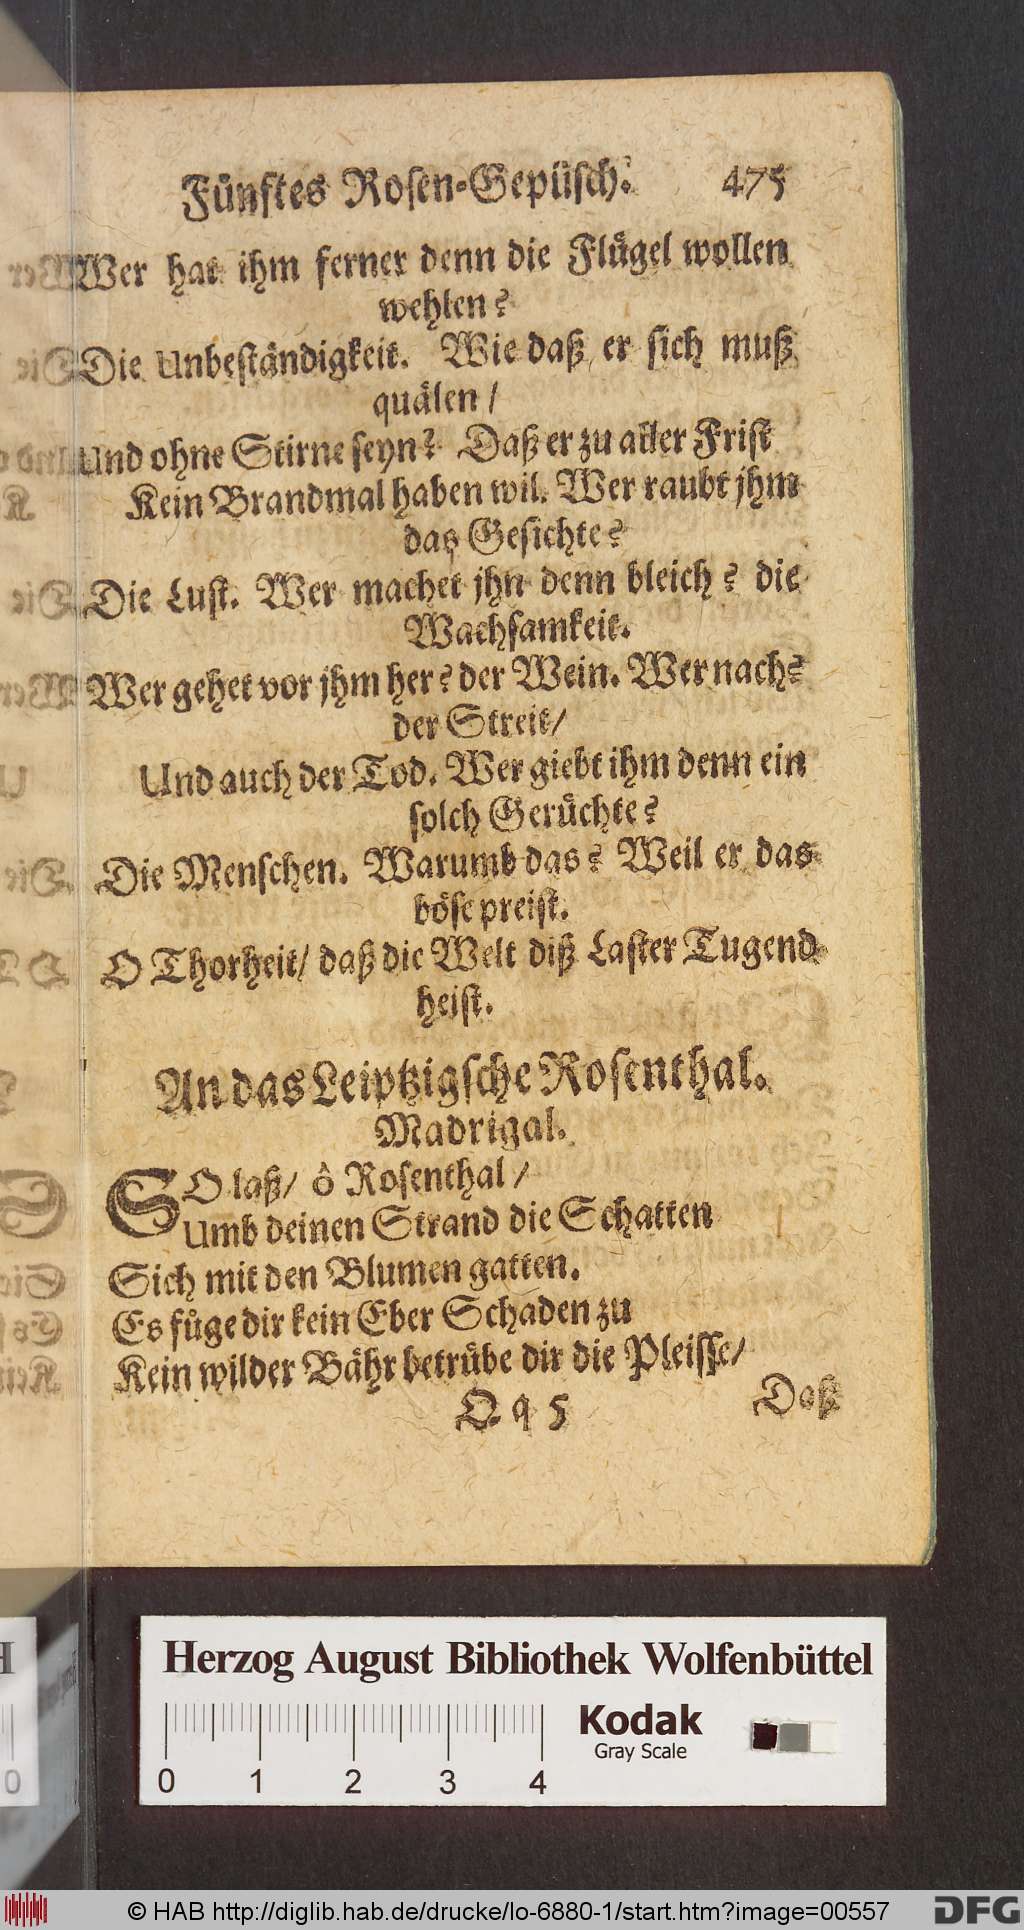 Fünftes Rosen-Gepüsch. 475
Wer hat ihm ferner denn die Flügel wollen
wehlen?
Die Unbeständigkeit. Wie daß er sich muß
quälen /
Und ohne Stirne seyn? Daß er zu aller Frist
Kein Brandmal haben wil. Wer raubt jhm
das Gesichte?
Die Lust. Wer machet jhn denn bleich? die
Wachsamkeit.
Wer gehet vor jhm her? der Wein. Wer nach?
der Streit /
Und auch der Tod. Wer giebt ihm denn ein
solch Gerüchte?
Die Menschen. Warumb das? Weil er das
böse preist.
O Thorheit / daß die Welt diß Laster Tugend
heist.
An das Leiptzigsche Rosenthal.
Madrigal.
SO laß / ô Rosenthal /
Umb deinen Strand die Schatten
Sich mit den Blumen gatten.
Es füge dir kein Eber Schaden zu
Kein wilder Bähr betrübe dir die Pleisse /
Q q 5 Daß
Herzog August Bibliothek Wolfenbüttel
Kodak
Gray Scale
0 1 2 3 4
© HAB http://diglib.hab.de/drucke/lo-6880-1/start.htm?image=00557
DFG